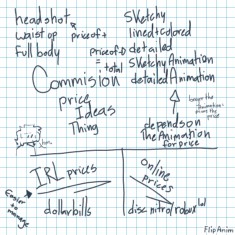 headshot
waist up
Full body
price of +
price of →
= total
SKetchy
lined + colored
detailed
SKetchy Animation
detailed Animation
Commision
price
Ideas
Thing
depends on
The Animation
for price
IRL prices
dollar bills
Easier to manage
online
prices
disc nitro/robux lol
FlipAnim